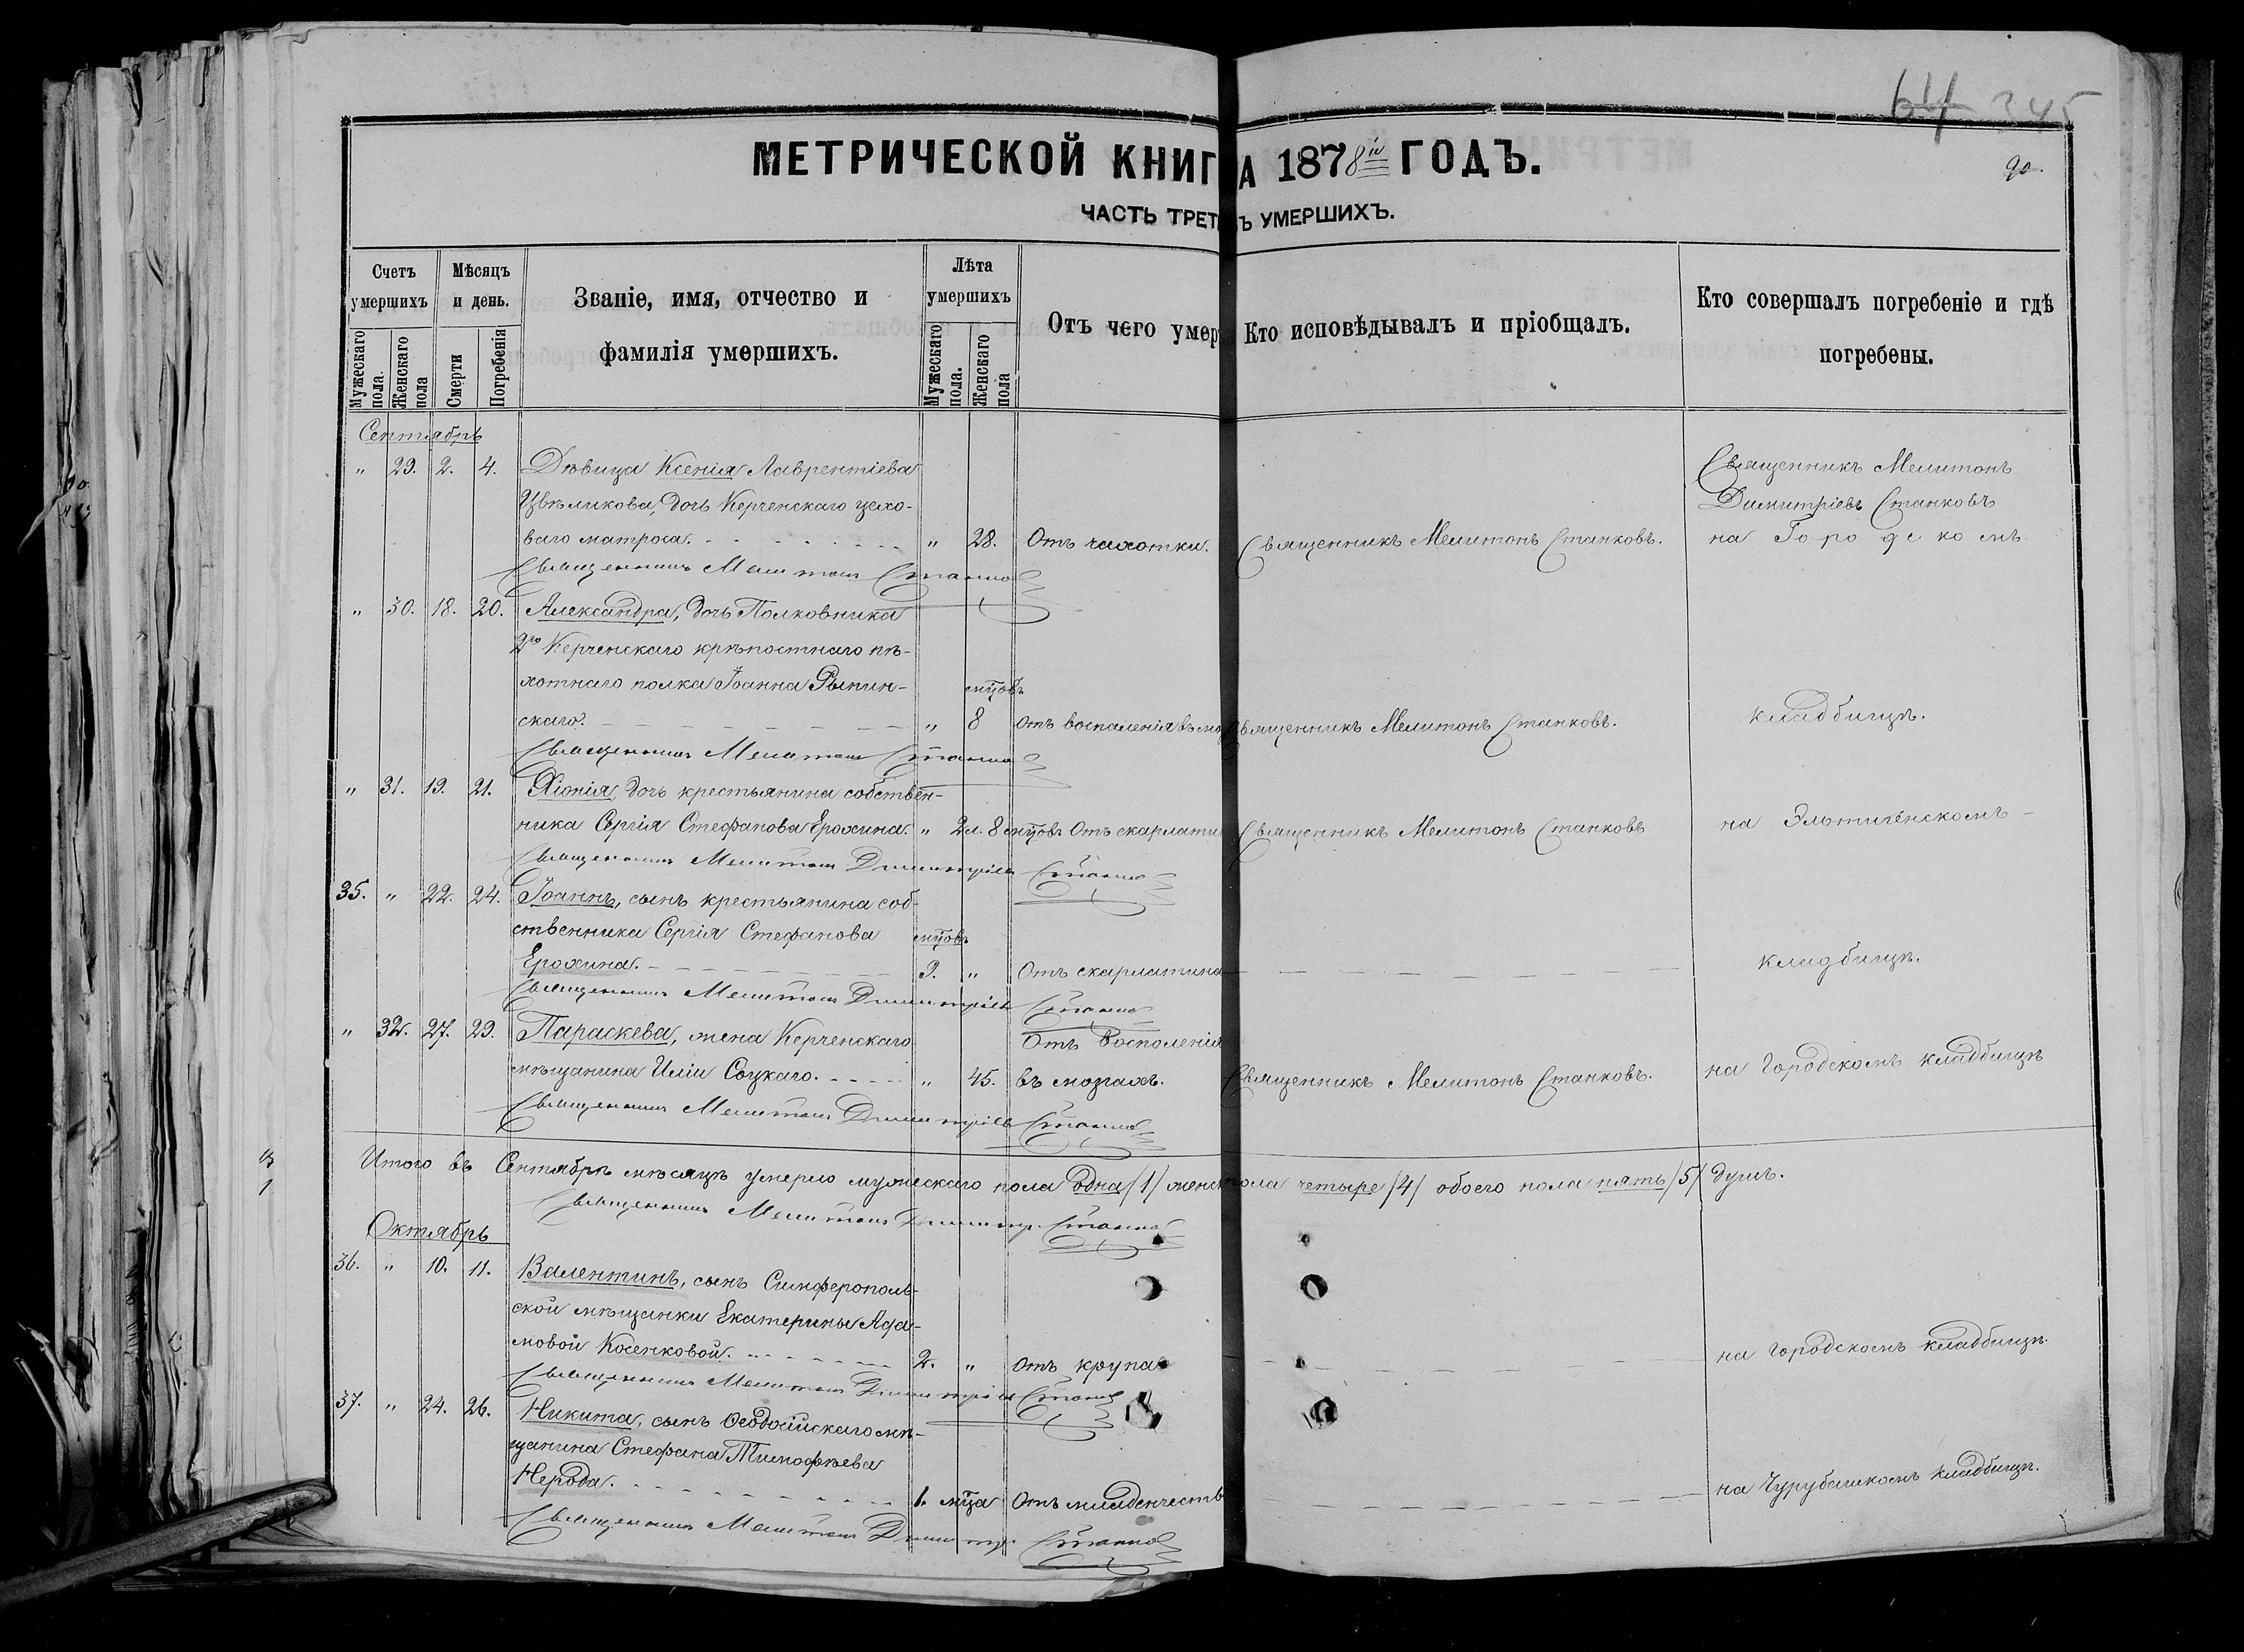 64 345
МЕТРИЧЕСКОЙ КНИГ А 1878й ГОДЪ.
90.
ЧАСТЬ ТРЕТ Ъ УМЕРШИХЪ.
Счетъ умершихъ
Мѣсяцъ и день.
Званіе, имя, отчество и фамилія умершихъ.
Лѣта умершихъ
Отъ чего умер
Кто исповѣдывалъ и пріобщалъ.
Кто совершалъ погребеніе и гдѣ погребены.
Мужескаго пола.
Женскаго пола
Смерти
Погребенія
Мужескаго пола.
Женскаго пола
Сентябрь
" 29. 2. 4. Дѣвица Ксенія Лаврентіева Священникъ Мелитонъ
дочь Керченскаго цехо- Димитріевъ Станковъ
ваго матроса. " 28. Отъ чахотки. Священникъ Мелитонъ Станковъ. на Городскомъ
Священникъ Мелитонъ Станковъ
" 30. 18. 20. Александра, дочь Полковника
2го Керченскаго крѣпостнаго пѣ-
хотнаго полка Іоанна Рыпин- мцовъ
скаго. " 8 отъ воспаленія въ мо Священникъ Мелитонъ Станковъ. кладбищѣ.
Священникъ Мелитонъ Станковъ
" 31. 19. 21. Хіонія, дочь крестьянина собствен-
ника Сергія Стефанова Ерохина. " 2 л. 8 мцовъ Отъ скарлати Священникъ Мелитонъ Станковъ на Эльтигенскомъ
Священникъ Мелитонъ Димитріевъ Станковъ
35. " 22. 24. Іоаннъ, сынъ крестьянина соб-
ственника Сергія Стефанова мцовъ
Ерохина. 9. " Отъ скарлатина кладбищѣ.
Священникъ Мелитонъ Димитріевъ Станковъ
" 32. 27. 29. Параскева, жена Керченскаго Отъ Восполенія
мѣщанина Иліи Соцкаго. " 45. въ мозгахъ. Священникъ Мелитонъ Станковъ. на Городскомъ кладбищѣ
Священникъ Мелитонъ Димитріевъ Станковъ
Итого въ Сентябрѣ мѣсяцѣ умерло мужескаго пола одна /1/ женск пола четыре /4/ обоего пола пять /5/ душъ.
Священникъ Мелитонъ Димитр. Станковъ
Октябрь
36. " 10. 11. Валентинъ, сынъ Симферополь-
ской мѣщанки Екатерины Ада-
мовой Косенковой. 2. " Отъ крупа на городскомъ кладбищѣ.
Священникъ Мелитонъ Димитріевъ Станковъ
37. " 24. 26. Никита, сынъ Ѳеодосійскаго мѣ-
щанина Стефана Тимофѣева
Нерода. 1. мца Отъ младенчеств на Чурубашскомъ кладбищѣ.
Священникъ Мелитонъ Димитр. Станковъ